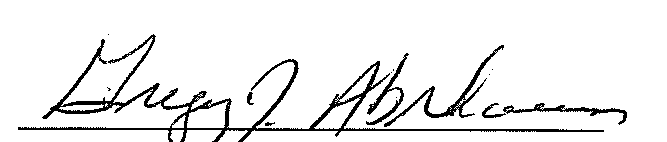 Gregg J. Abrahams